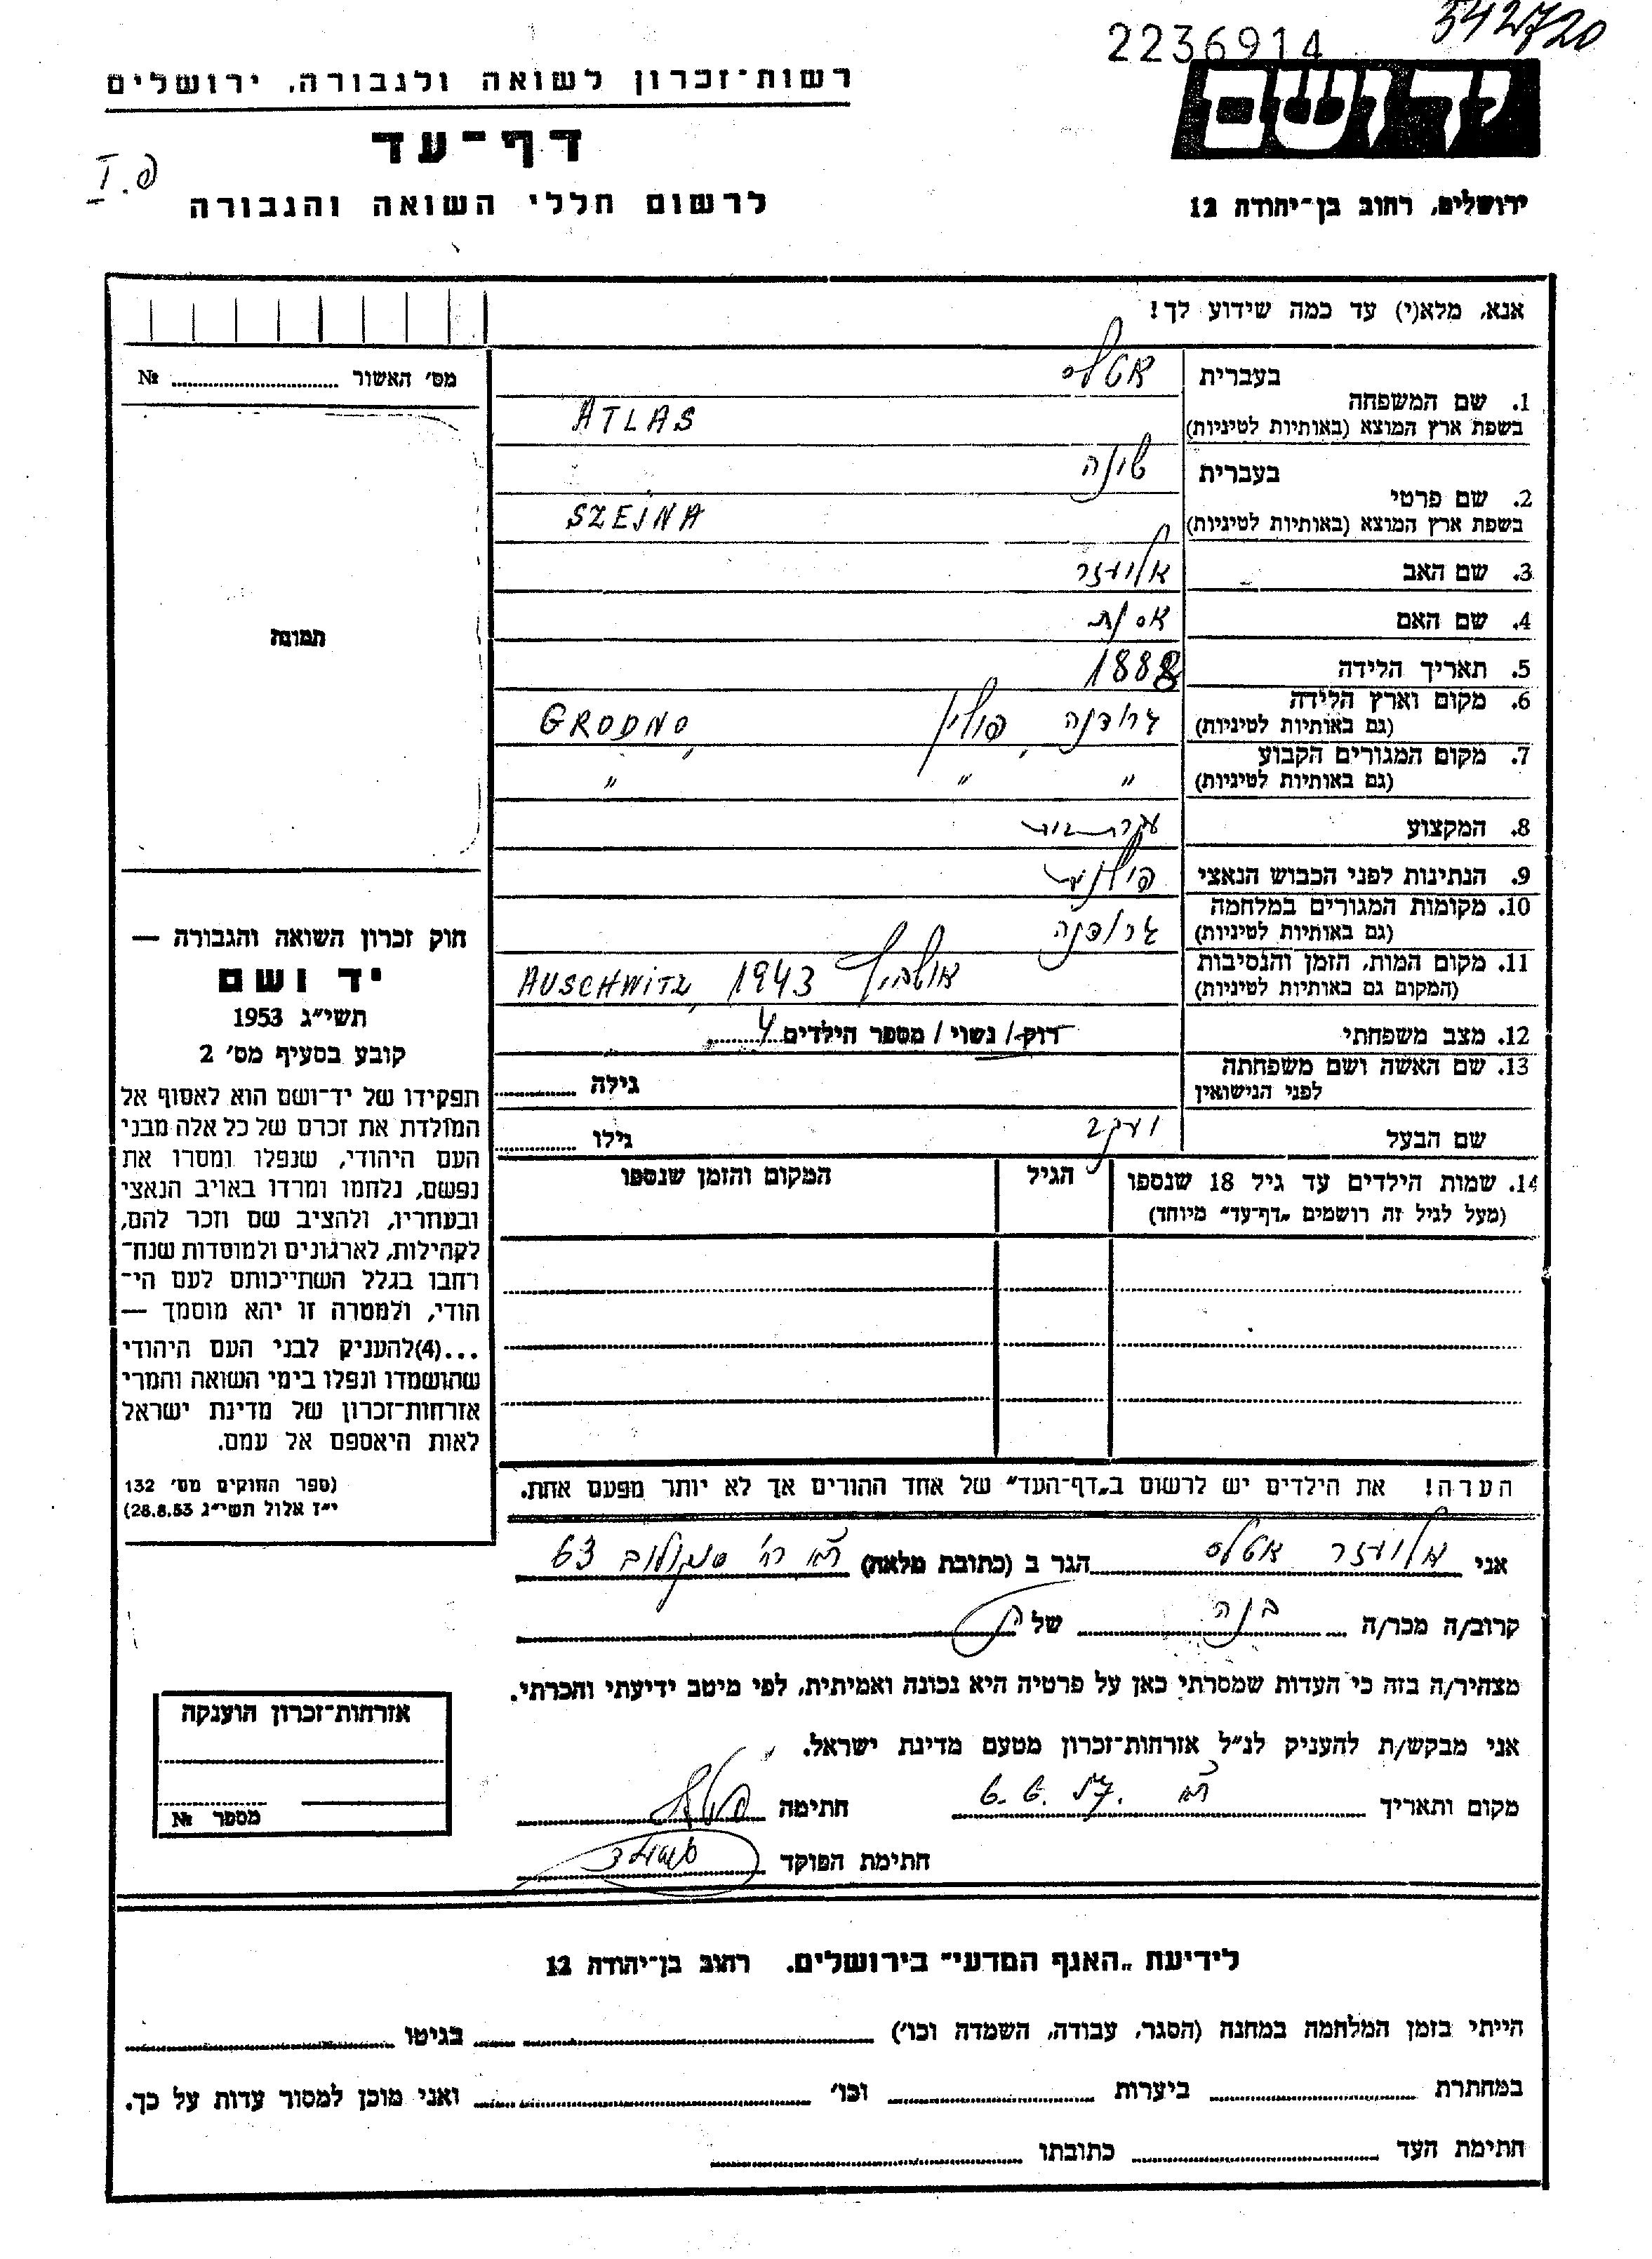 2236914
542720
יד ושם
רשות־זכרון לשואה ולגבורה, ירושלים
דף־עד
לרשום חללי השואה והגבורה
ירושלים, רחוב בן־יהודה 12
אנא, מלא(י) עד כמה שידוע לך!
מס׳ האשור № 
בעברית אטלס
1. שם המשפחה
בשפת ארץ המוצא (באותיות לטיניות) ATLAS
בעברית שינה
2. שם פרטי
בשפת ארץ המוצא (באותיות לטיניות) SZEJNA
3. שם האב אליעזר
4. שם האם אסנת
5. תאריך הלידה 1888
6. מקום וארץ הלידה
(גם באותיות לטיניות) גרודנה, פולין GRODNO,
7. מקום המגורים הקבוע
(גם באותיות לטיניות) " " "
8. המקצוע עקרת בית
9. הנתינות לפני הכבוש הנאצי פולנית
10. מקומות המגורים במלחמה
(גם באותיות לטיניות) גרודנה
11. מקום המות, הזמן והנסיבות
(המקום גם באותיות לטיניות) AUSCHWITZ, 1943
12. מצב משפחתי רוק/ נשוי/ מספר הילדים 4
13. שם האשה ושם משפחתה
לפני הנישואין גילה
שם הבעל יעקב גילו
14. שמות הילדים עד גיל 18 שנספו הגיל המקום והזמן שנספו
(מעל לגיל זה רושמים „דף־עד" מיוחד)
הערה! את הילדים יש לרשום ב„דף־העד" של אחד ההורים אך לא יותר מפעם אחת.
תמונה
חוק זכרון השואה והגבורה —
יד ושם
תשי״ג 1953
קובע בסעיף מס׳ 2
תפקידו של יד־ושם הוא לאסוף אל
המולדת את זכרם של כל אלה מבני
העם היהודי, שנפלו ומסרו את
נפשם, נלחמו ומרדו באויב הנאצי
ובעוזריו, ולהציב שם וזכר להם,
לקהילות, לארגונים ולמוסדות שנח־
רחבו בגלל השתייכותם לעם הי־
הודי, ולמטרה זו יהא מוסמך —
...(4)להעניק לבני העם היהודי
שהושמדו ונפלו בימי השואה והמרי
אזרחות־זכרון של מדינת ישראל
לאות היאספם אל עמם.
(ספר החוקים מס׳ 132
י״ז אלול תשי״ג 28.8.53)
אני אליעזר אטלס הגר ב (כתובת מלאה) סוקולוב 63
קרוב/ה מכר/ה בנה של
מצהיר/ה בזה כי העדות שמסרתי כאן על פרטיה היא נכונה ואמיתית, לפי מיטב ידיעתי והכרתי.
אני מבקש/ת להעניק לנ״ל אזרחות־זכרון מטעם מדינת ישראל.
מקום ותאריך חתימה
חתימת הפוקד
אזרחות־זכרון הוענקה
מספר №
לידיעת „האגף המדעי" בירושלים, רחוב בן־יהודה 12
הייתי בזמן המלחמה במחנה (הסגר, עבודה, השמדה וכו׳) בגיטו
במחתרת ביערות וכו׳ ואני מוכן למסור עדות על כך.
חתימת העד כתובתו